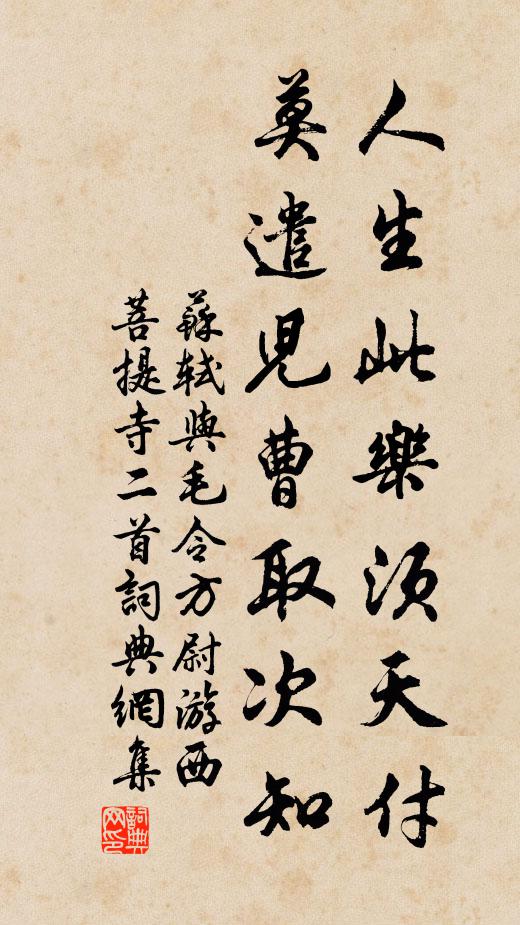 人生此樂須天付
莫遣兒曹取次知
蘇軾與毛令方尉游西
菩提寺二首詞典網集
詞典
网印